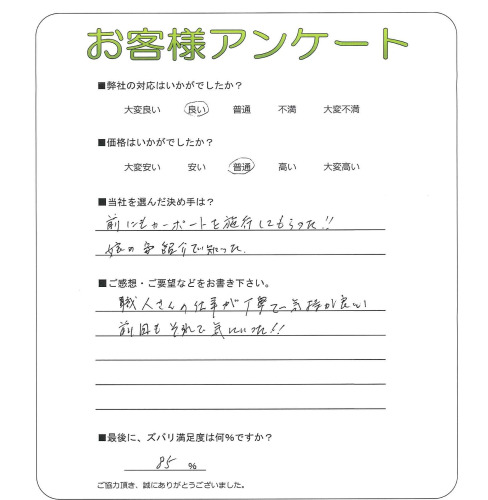 お客様アンケート
■弊社の対応はいかがでしたか？
大変良い 良い 普通 不満 大変不満
■価格はいかがでしたか？
大変安い 安い 普通 高い 大変高い
■当社を選んだ決め手は？
前にもカーポートを施行してもらった!!
紹介で知った
■ご感想・ご要望などをお書き下さい。
職人さんの仕事が丁寧で気持が良い
前回もそれで気にいった!!
■最後に、ズバリ満足度は何%ですか？
85 %
ご協力頂き、誠にありがとうございました。